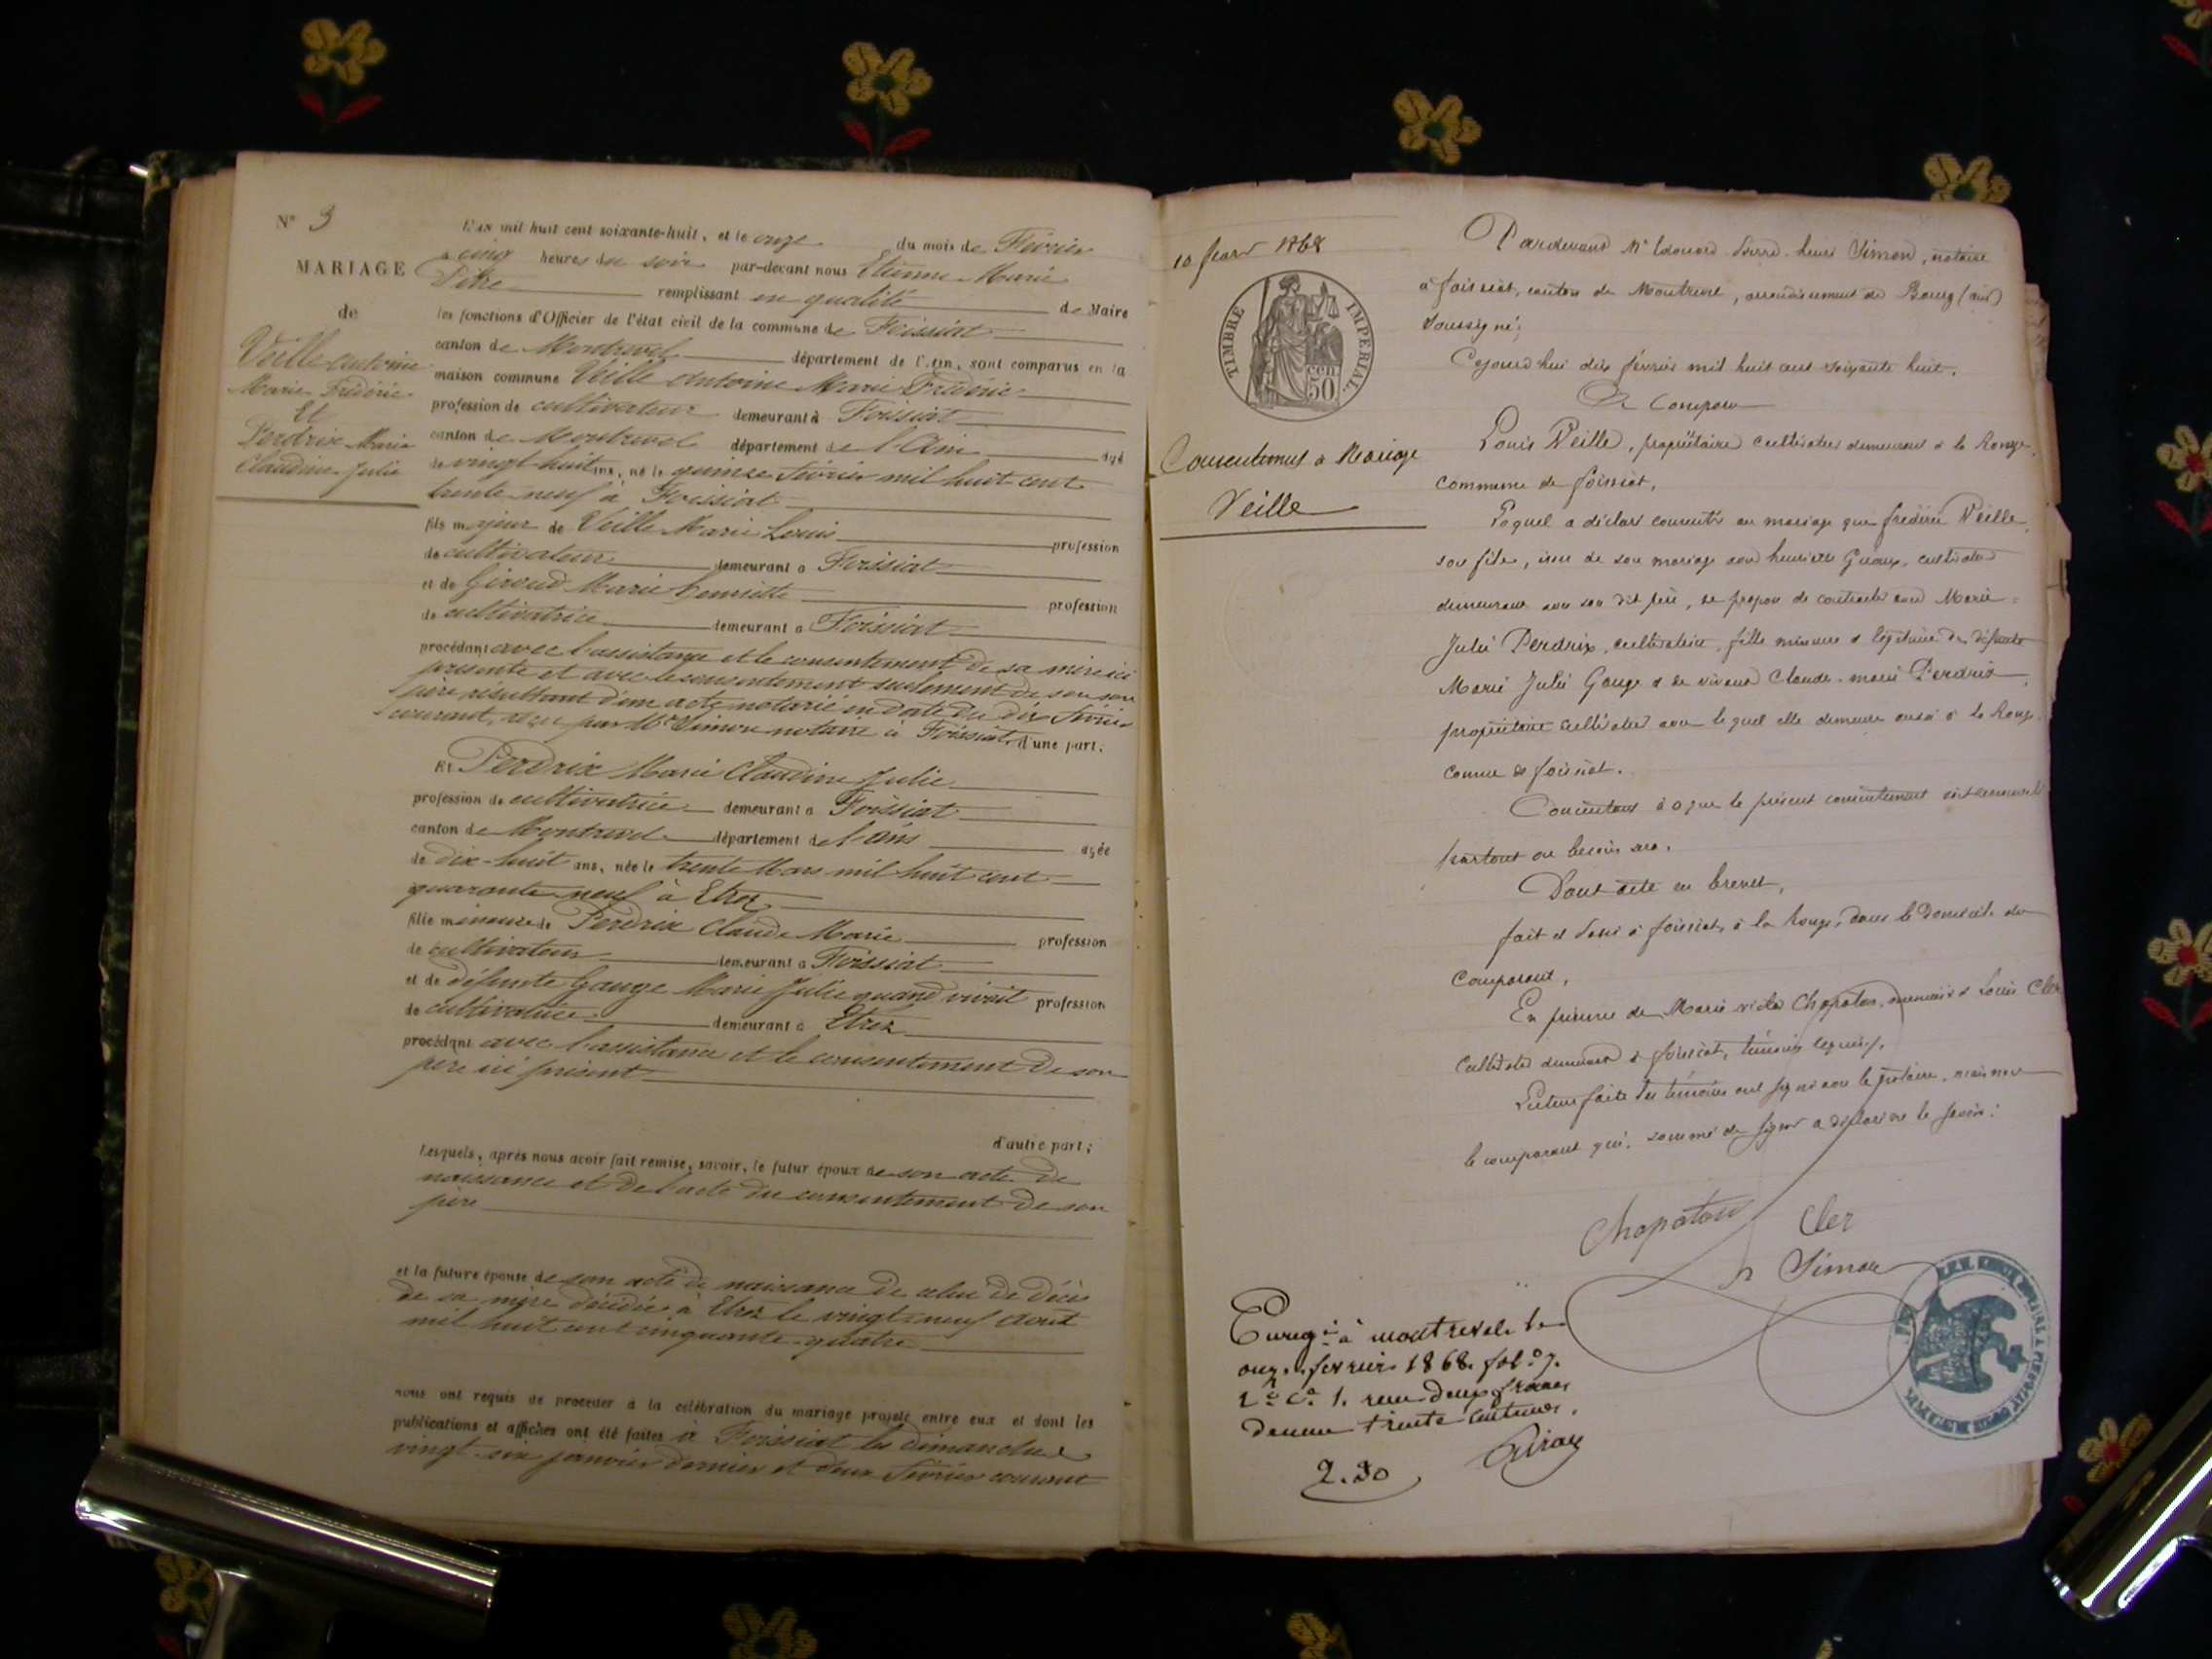 N° 3
MARIAGE
de
Veille Antoine
Marie Frédéric
Et
Perdrix Marie
Claudine Julie
L'AN mil huit cent soixante-huit, et le onze du mois de Février
à cinq heures du soir par-devant nous Etienne Marie
remplissant en qualité de Maire
les fonctions d'Officier de l'état civil de la commune de Foissiat
canton de Montrevel département de l'Ain, sont comparus en la
maison commune Veille Antoine Marie Frédéric
profession de cultivateur demeurant à Foissiat
canton de Montrevel département de l'Ain âgé
de vingt-huit ans, né le quinze février mil huit cent
trente neuf à Foissiat
fils majeur de Veille Marie Louis profession
de cultivateur demeurant à Foissiat
et de Giroud Marie henriette profession
de cultivatrice demeurant à Foissiat
procédant avec l'assistance et le consentement de sa mère ici
présente et avec le consentement seulement de son
père résultant d'un acte notarié en date du dix février
courant, reçu par Me Simon notaire à Foissiat, d'une part;
Et Perdrix Marie Claudine Julie
profession de cultivatrice demeurant à Foissiat
canton de Montrevel département de l'ain âgée
de dix-huit ans, née le trente Mars mil huit cent
quarante neuf à Etrez
fille mineure de Perdrix Claude Marie profession
de cultivateur demeurant à Foissiat
et de défunte Gauge Marie Julie quand vivait profession
de cultivatrice demeurant à Etrez
procédant avec l'assistance et le consentement de son
père ici présent
d'autre part;
Lesquels, après nous avoir fait remise, savoir, le futur époux de son acte de
naissance et de l'acte du consentement de son
père
et la future épouse de son acte de naissance de celui de décès
de sa mère décédée à Etrez le vingt-neuf Août
mil huit cent cinquante-quatre
nous ont requis de procéder à la célébration du mariage projeté entre eux et dont les
publications et affiches ont été faites à Foissiat les dimanches
vingt-six janvier dernier et deux février courant
10 fevr 1868
TIMBRE IMPERIAL
50 cen
Consentement à Mariage
Veille
Pardevant Me Edouard Pierre henri Simon, notaire
à foissiat, canton de Montrevel, arrondissement de Bourg (ain)
soussigné;
Cejourd'hui dix février mil huit cent soixante huit.
A Comparu
Louis Veille, propriétaire cultivateur demeurant à la Rouge,
commune de foissiat,
Lequel a déclaré consentir au mariage que frédéric Veille,
son fils, issu de son mariage avec henriette cultivateur
demeurant avec son dit père, se propose de contracter avec Marie
Julie Perdrix, cultivatrice, fille mineure et légitime de défunte
Marie Julie Gauge et de vivant Claude-marie Perdrix,
propriétaire cultivateur avec lequel elle demeure aussi à la Rouge
comne de foissiat.
Consentant à ce que le présent consentement soit
partout où besoin sera.
Dont acte en brevet,
fait et passé à foissiat, à la Rouge, dans le domicile du
comparant,
En présence de Marie victor Chapaton, menuisier et Louis Cler
cultivateur demeurant à foissiat, témoins requis,
Lecture faite les témoins ont signé avec le notaire, mais non
le comparant qui, sommé de signer a déclaré ne le savoir.
Chapaton Cler
Simon
Enregé à montrevel le
onze février 1868 fol° 7.
r° C° 1. reçu deux francs
décime trente centimes.
2.30